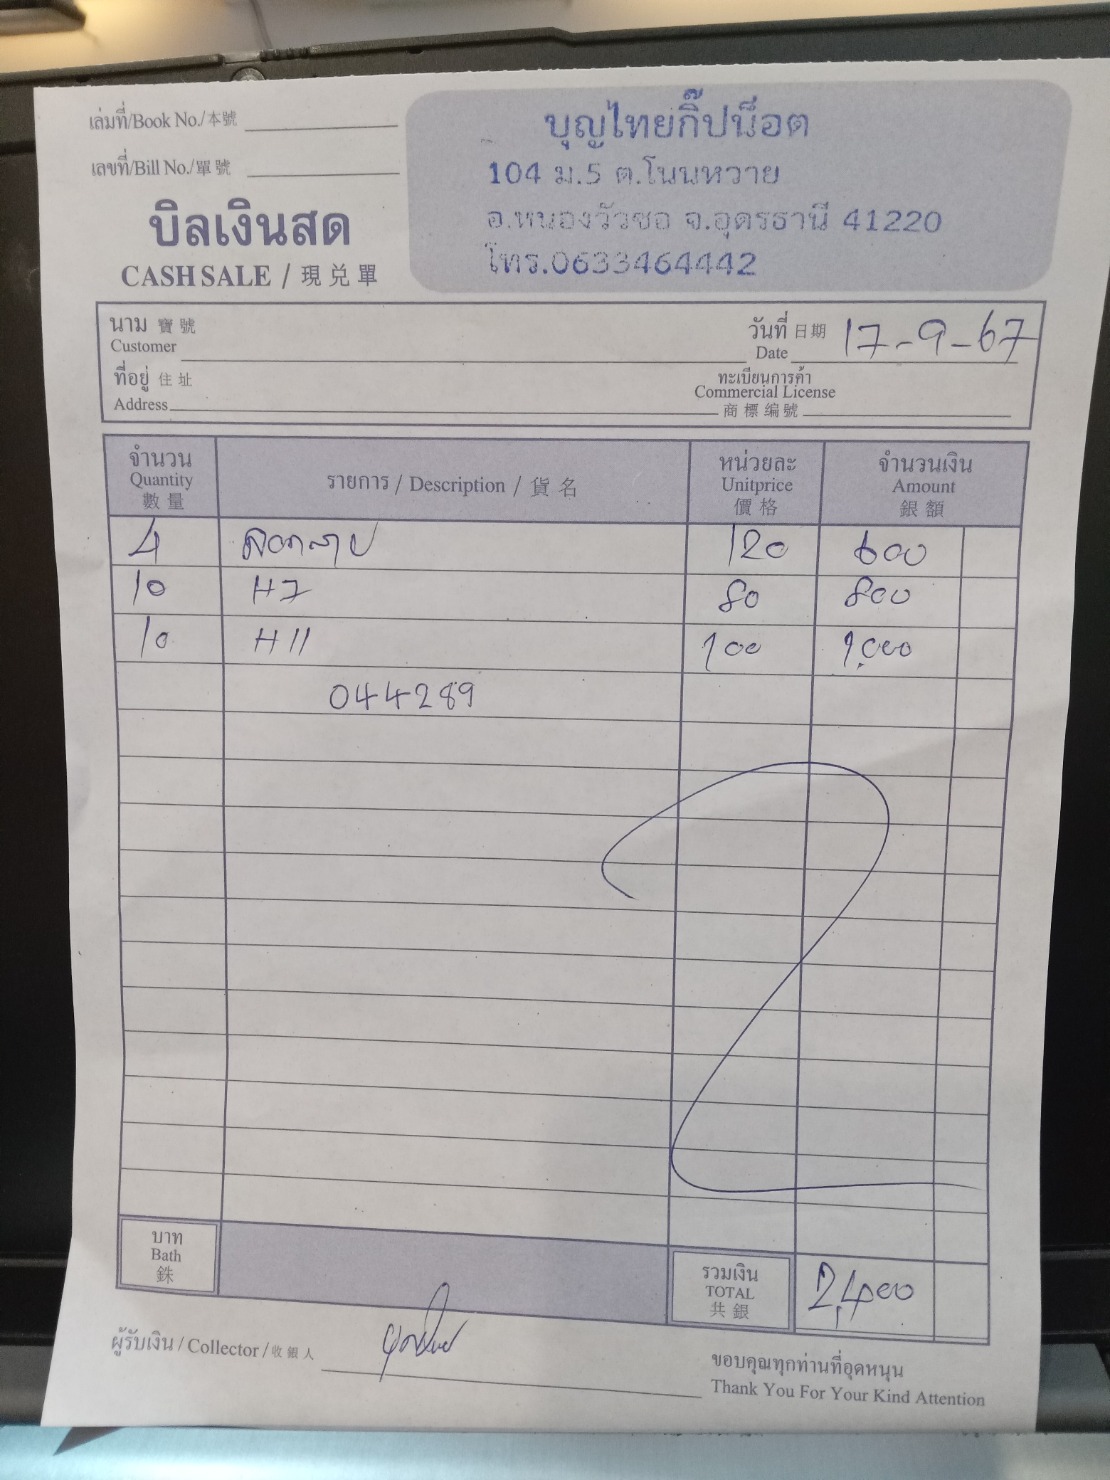 เล่มที่/Book No./本號
เลขที่/Bill No./單號
บิลเงินสด
CASH SALE / 現兑單
บุญไทยกิ๊ปน็อต
104 ม.5 ต.โนนหวาย
อ.หนองวัวซอ จ.อุดรธานี 41220
โทร.0633464442
นาม 寶號
Customer
วันที่ 日期 17-9-67
Date
ที่อยู่ 住址
Address
ทะเบียนการค้า
Commercial License
商標编號
จำนวน
Quantity
數量
รายการ / Description / 貨名
หน่วยละ
Unitprice
價格
จำนวนเงิน
Amount
銀額
4 120 600
10 H7 80 800
10 H11 100 1,000
044289
บาท
Bath
銖
รวมเงิน
TOTAL
共銀
2,400
ผู้รับเงิน / Collector / 收銀人
ขอบคุณทุกท่านที่อุดหนุน
Thank You For Your Kind Attention